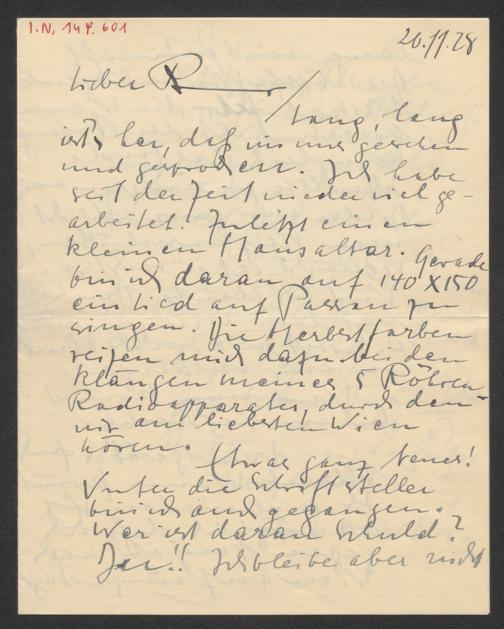 I.N. 149.601
26.11.28
Lieber R
Lang, lang
ist's her, daß wir uns gesehen
und gesprochen. Ich habe
seit der Zeit wieder viel ge-
arbeitet. Zuletzt einen
kleinen Hausaltar. Gerade
bin ich daran auf 140 X 150
ein Lied auf Passau zu
singen. Die Herbstfarben
reizen mich dazu bei den
Klängen meines 5 Röhren
Radioapparates, durch den
wir am liebsten Wien
hören.
Etwas ganz Neues!
Unter die Schriftsteller
bin ich auch gegangen.
Wer ist daran schuld?
Ich bleibe aber nicht